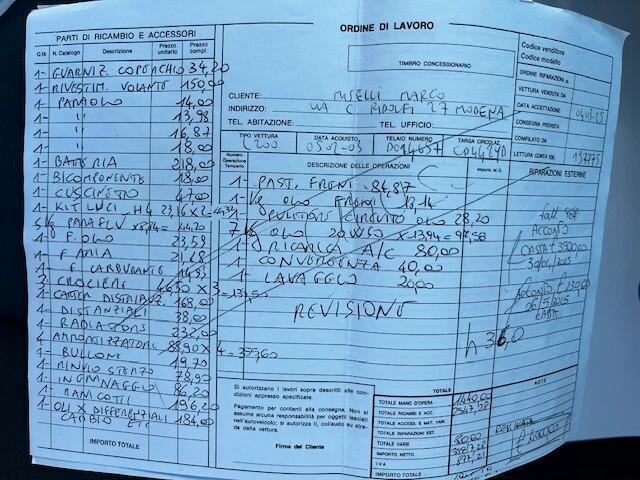 PARTI DI RICAMBIO E ACCESSORI
Q.tà N. Catalogo Descrizione Prezzo unitario Prezzo compl.
1- GUARNIZ. COPERCHIO 34,20
1- RIVESTIM. VOLANTE 150,00
1- PARAOLIO 14,00
1- " 13,98
1- " 16,87
1- " 18,00
1- BATTERIA 218,00
1- BICOMPONENTE 18,00
1- CUSCINETTO 47,00
1- KIT LUCI - H4 22,16 x 2 =
5 Kg PARAFLU x 8,84 = 44,20
1- F. OLIO 23,59
1- F. ARIA 21,68
1- F. CARBURANTE 14,93
3 CROCIERE 46,50 x 3 =
1- CARTER DISTRIBUZ. 168,00
1- DISTANZIALI 38,00
1- RADIATORE 232,00
4 AMMORTIZZATORI 88,90 x 4 = 355,60
1- BULLONI 19,70
1- RINVIO STERZO 78,90
1- INGRANAGGIO 86,20
1- MANICOTTI 196,20
1- OLI X DIFFERENZIALI 184,00
CAMBIO ETC
IMPORTO TOTALE
ORDINE DI LAVORO
TIMBRO CONCESSIONARIO
CLIENTE: MISELLI MARCO
INDIRIZZO: VIA C RIDOLFI 27 MODENA
TEL. ABITAZIONE: TEL. UFFICIO:
TIPO VETTURA DATA ACQUISTO TELAIO NUMERO TARGA CIRCOLAZ.
L200 05-07-03
Codice venditore
Codice modello
ORDINE RIPARAZIONI N.
VETTURA VENDUTA DA
DATA ACCETTAZIONE
CONSEGNA PREVISTA
COMPILATO DA
LETTURA CONTA KM. 197775
Numero Operazione Tempario DESCRIZIONE DELLE OPERAZIONI Importo M.O. RIPARAZIONI ESTERNE
1- PAST. FRENI - 84,87
1 Kg OLIO FRENI 13,14
1- PULITORE CIRCUITO OLIO 28,20
7 Kg OLIO 20W50 x 13,94 = 97,58
1 RICARICA A/C 80,00
1 CONVERGENZA 40,00
1 LAVAGGIO 20,00
REVISIONE
ACCONTO
30/04/2025
ACCONTO
26/5/2025
Si autorizzano i lavori sopra descritti alle condizioni appresso specificate.
Pagamento per contanti alla consegna. Non si assume alcuna responsabilità per oggetti lasciati nell'autoveicolo; si autorizza il collaudo su strada della vettura.
Firma del Cliente
TOTALE
NOTE
TOTALE MANO D'OPERA 1440,00
TOTALE RICAMBI E ACC.
TOTALE ACCESS. E MAT. VARI
TOTALE RIPARAZIONI EST.
TOTALE VARIE
IMPORTO NETTO
I V A
IMPORTO TOTALE